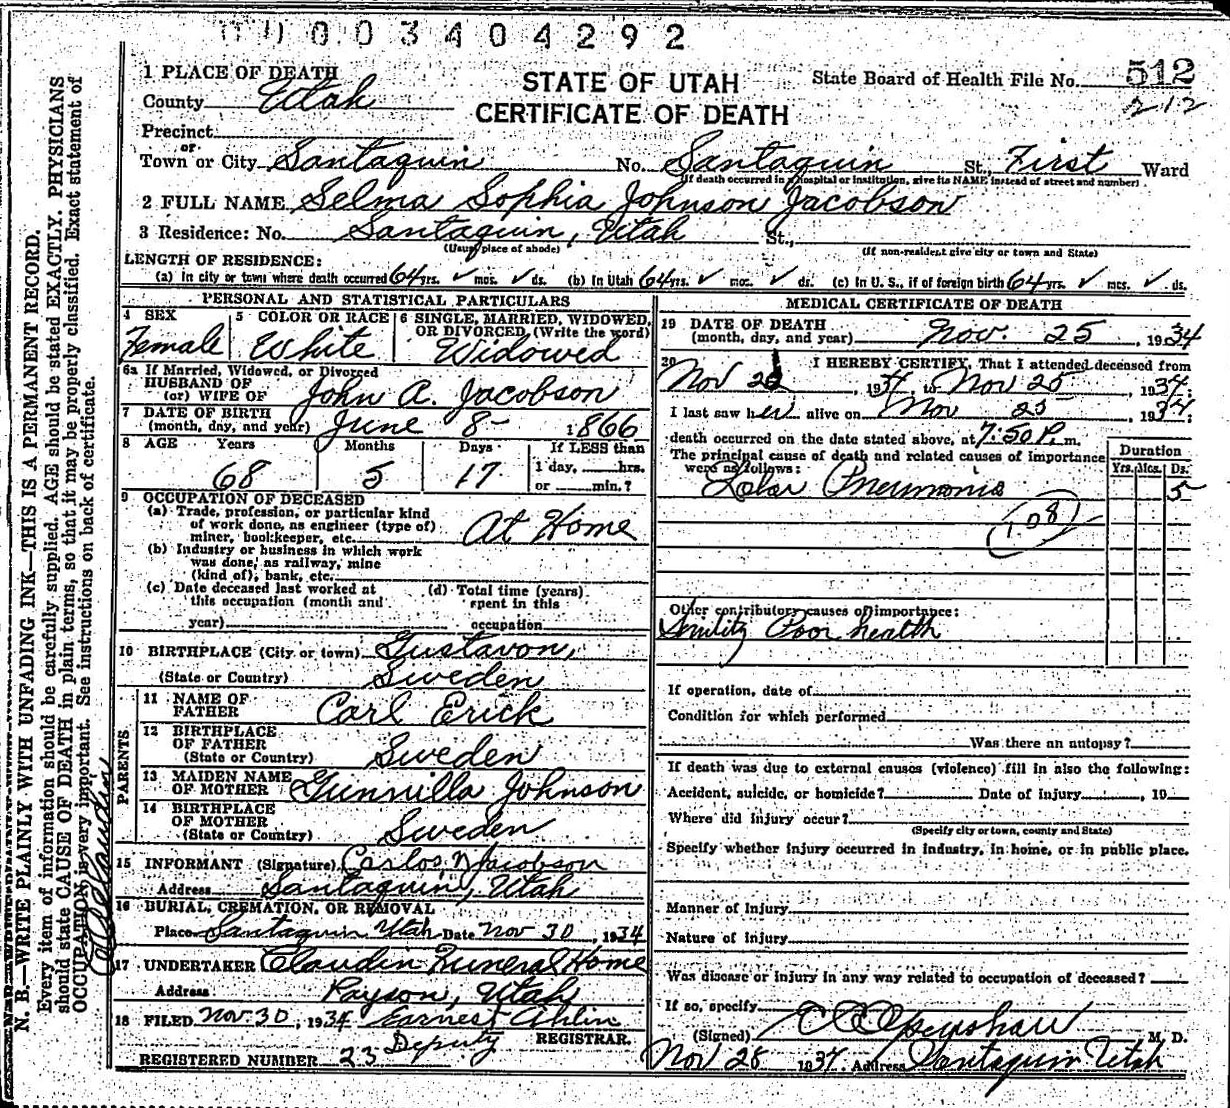 0003404292
1 PLACE OF DEATH
STATE OF UTAH
CERTIFICATE OF DEATH
State Board of Health File No. 512
212
County Utah
Precinct
or
Town or City Santaquin No. Santaquin St., First Ward
(If death occurred in a hospital or institution, give its NAME instead of street and number)
2 FULL NAME Selma Sophia Johnson Jacobson
3 Residence: No. Santaquin, Utah St.,
(Usual place of abode) (If non-resident give city or town and State)
LENGTH OF RESIDENCE:
(a) In city or town where death occurred 64 yrs. ✓ mos. ✓ ds. (b) In Utah 64 yrs. ✓ mos. ✓ ds. (c) In U. S., if of foreign birth 64 yrs. ✓ mos. ✓ ds.
PERSONAL AND STATISTICAL PARTICULARS
4 SEX 5 COLOR OR RACE 6 SINGLE, MARRIED, WIDOWED,
OR DIVORCED, (Write the word)
Female White Widowed
6a If Married, Widowed, or Divorced
HUSBAND OF
(or) WIFE OF John A. Jacobson
7 DATE OF BIRTH
(month, day, and year) June 8- 1866
8 AGE Years Months Days If LESS than
1 day, hrs.
68 5 17 or min.?
9 OCCUPATION OF DECEASED
(a) Trade, profession, or particular kind
of work done, as engineer (type of)
miner, bookkeeper, etc. At Home
(b) Industry or business in which work
was done, as railway, mine
(kind of), bank, etc.
(c) Date deceased last worked at (d) Total time (years)
this occupation (month and spent in this
year) occupation
10 BIRTHPLACE (City or town) Gustavon,
(State or Country) Sweden
PARENTS
11 NAME OF
FATHER Carl Erick
12 BIRTHPLACE
OF FATHER
(State or Country) Sweden
13 MAIDEN NAME
OF MOTHER Gunnilla Johnson
14 BIRTHPLACE
OF MOTHER
(State or Country) Sweden
15 INFORMANT (Signature) Carlos N Jacobson
Address Santaquin, Utah
16 BURIAL, CREMATION, OR REMOVAL
Place Santaquin Utah Date Nov 30, 1934
17 UNDERTAKER Claudin Funeral Home
Address Payson, Utah
18 FILED Nov. 30, 1934 Earnest Ahlin
Deputy REGISTRAR.
REGISTERED NUMBER 23
MEDICAL CERTIFICATE OF DEATH
19 DATE OF DEATH
(month, day, and year) Nov. 25, 1934
20 I HEREBY CERTIFY, That I attended deceased from
Nov, 1934 to Nov 25, 1934.
I last saw her alive on Nov 25, 1934
death occurred on the date stated above, at 7:50 P. m.
The principal cause of death and related causes of importance
were as follows:
Duration
Yrs. Mos. Ds.
Lobar Pneumonia 5
108
Other contributory causes of importance:
Senility Poor health
If operation, date of
Condition for which performed
Was there an autopsy?
If death was due to external causes (violence) fill in also the following:
Accident, suicide, or homicide? Date of injury, 19
Where did injury occur?
(Specify city or town, county and State)
Specify whether injury occurred in industry, in home, or in public place.
Manner of injury
Nature of injury
Was disease or injury in any way related to occupation of deceased?
If so, specify
(Signed) Openshaw M. D.
Nov 28 1934. Address Santaquin Utah
N. B.—WRITE PLAINLY WITH UNFADING INK—THIS IS A PERMANENT RECORD.
Every item of information should be carefully supplied. AGE should be stated EXACTLY. PHYSICIANS
should state CAUSE OF DEATH in plain terms, so that it may be properly classified. Exact statement of
OCCUPATION is very important. See instructions on back of certificate.